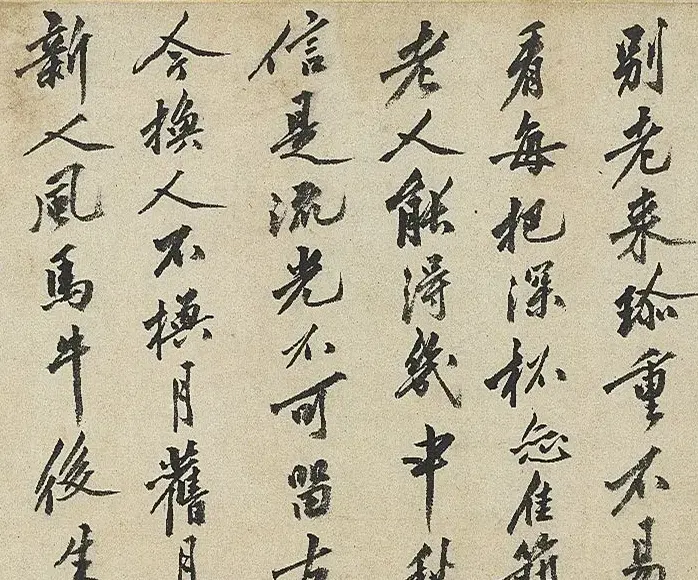 別老来珎重不易
看每把深杯恋佳節
老人能得幾中秋
信是流光不可留古
今換人不換月舊月
新人風馬牛後生